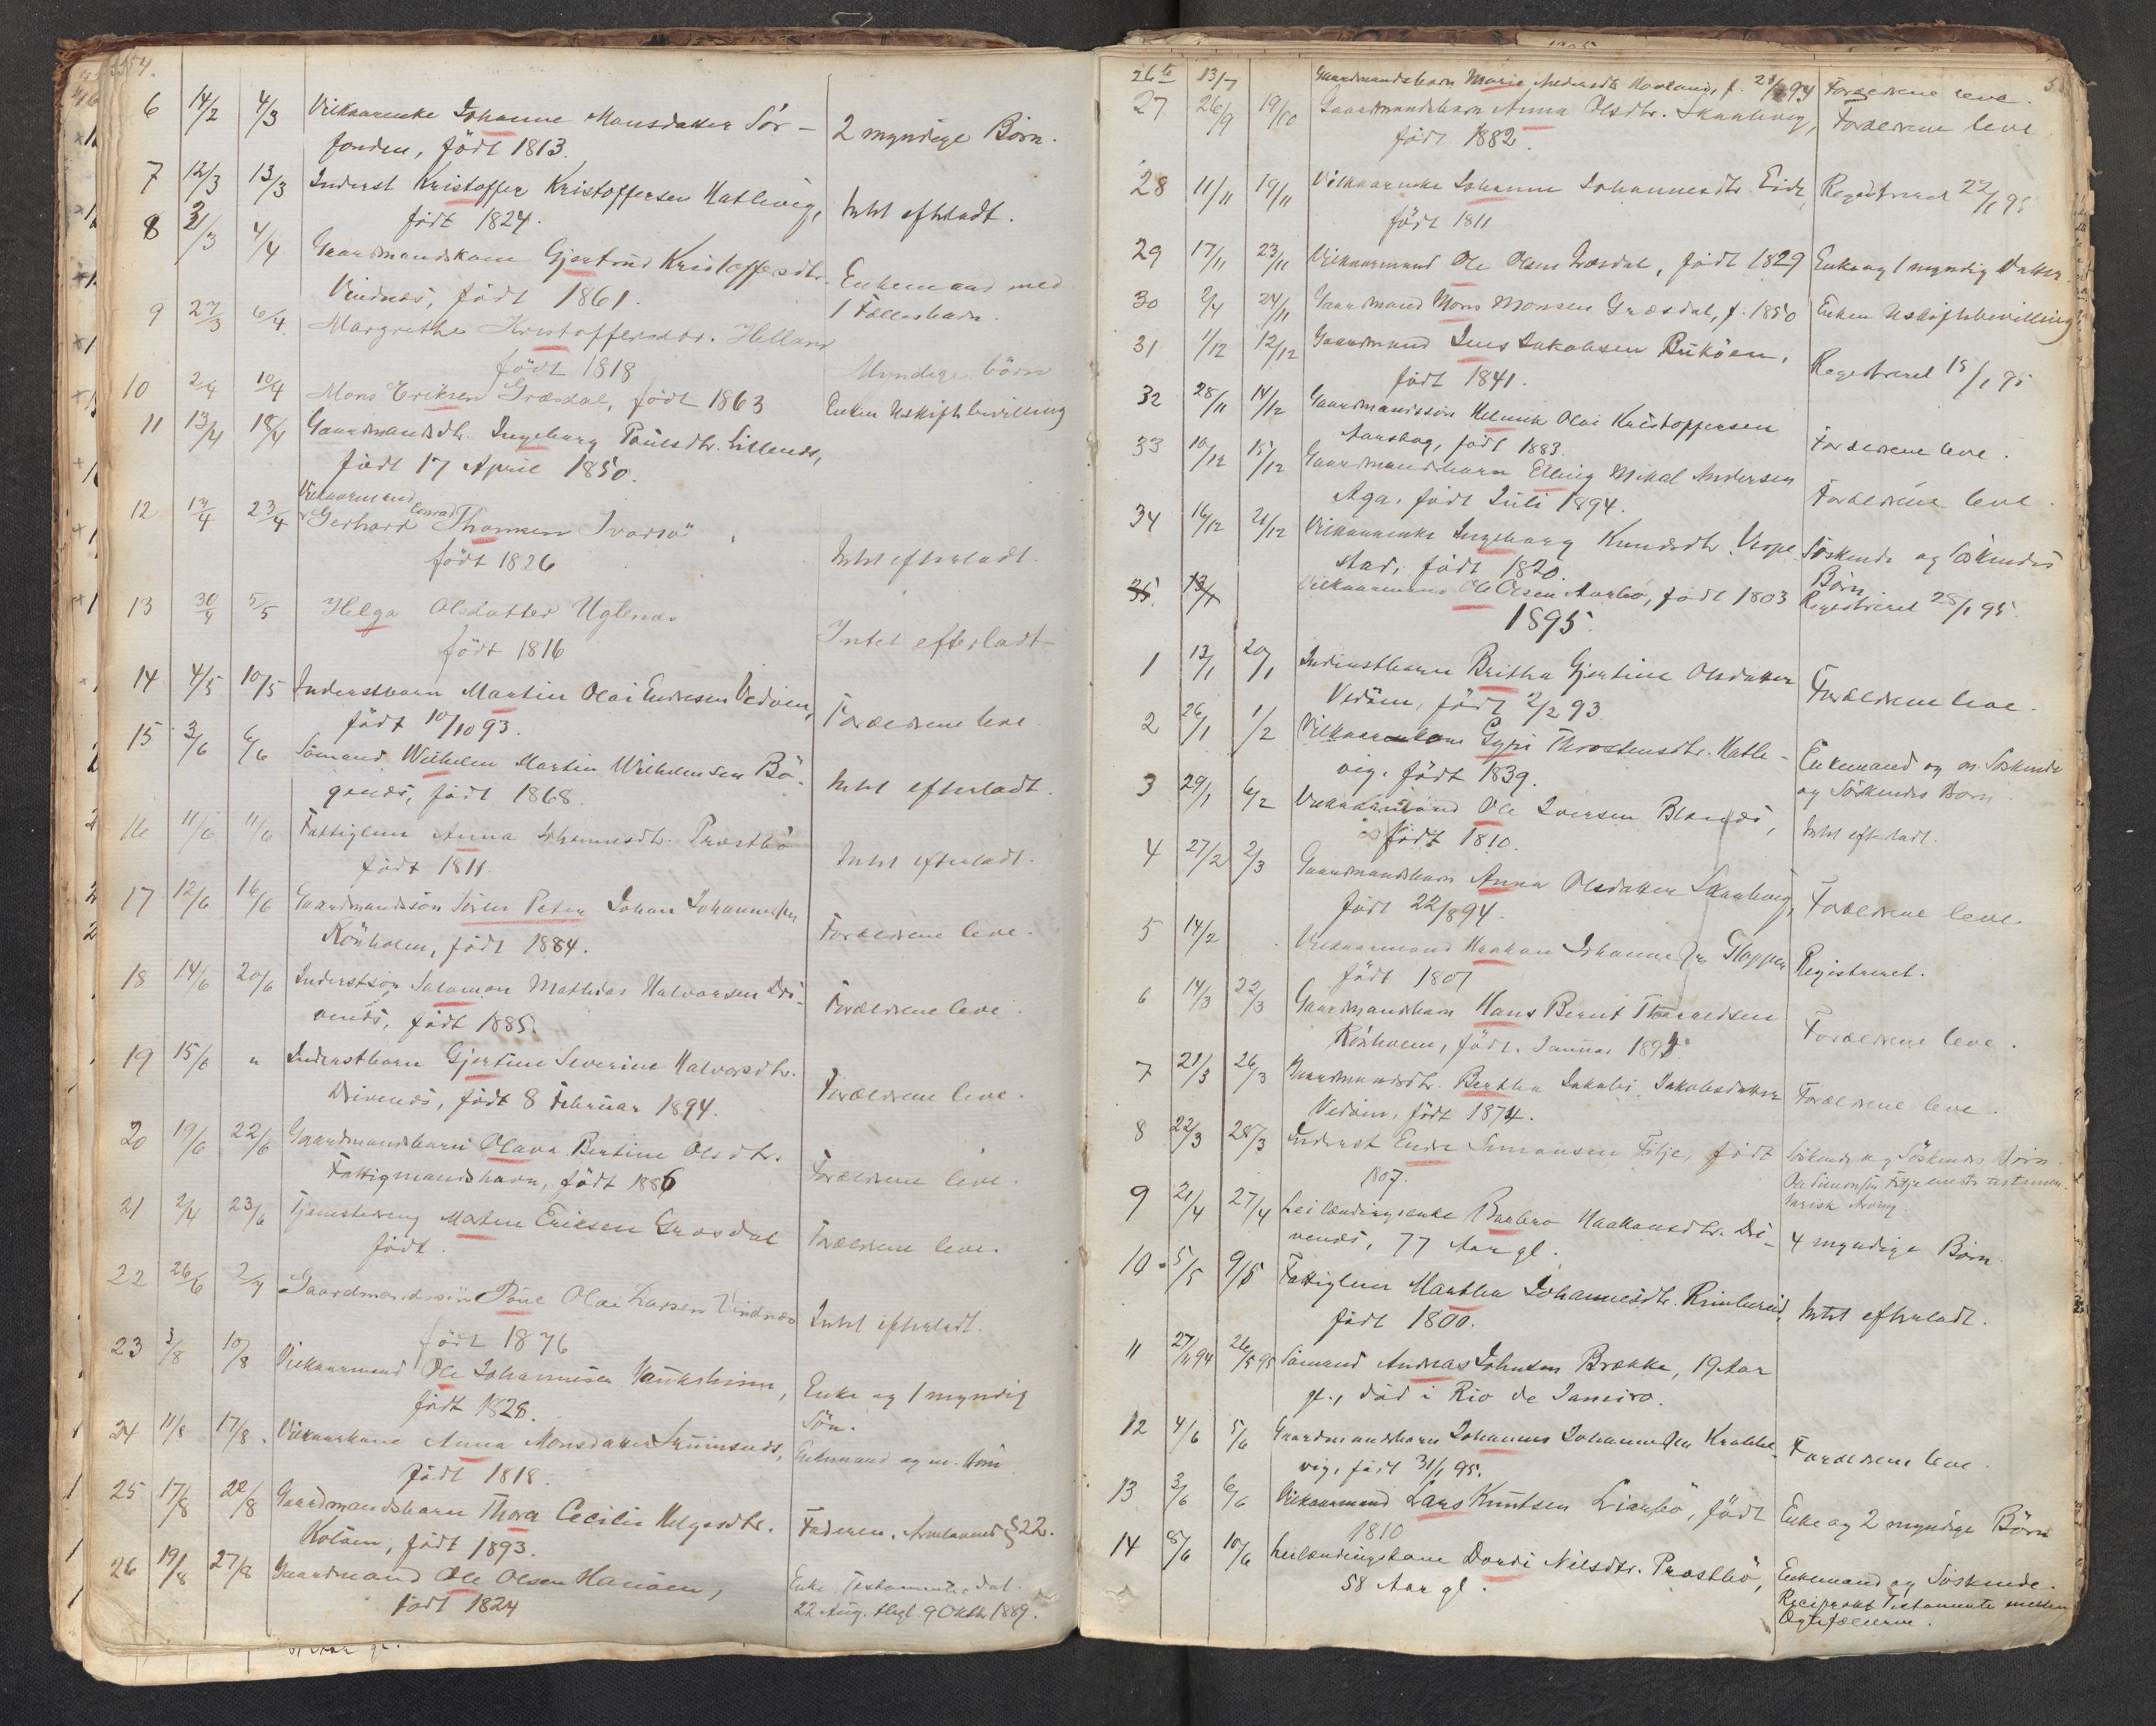 554.
6 14/2 4/3 Vilkaarenke Johanne Monsdatter Sör- 2 myndige Börn.
fonden, födt 1813.
7 12/3 13/3 Inderst Kristoffer Kristoffersen Hatlevig, Intet efterladt.
födt 1824.
8 31/3 4/4 Gaardmandskone Gjertrud Kristoffersdtr. Enkemand med
Vindnæs, födt 1861. 1 Fællesbarn.
9 27/3 6/4 Margrethe Kristoffersdtr. Helland
födt 1818 Myndige börn
10 2/4 10/4 Mons Eriksen Græsdal, födt 1863 Enken Uskiftebevilling
11 13/4 18/4 Gaardmandsdtr. Ingeborg Poulsdtr. Lillenes,
födt 17 April 1850.
Vilkaarmand
12 17/4 23/4 Gerhard Conrad Thomsen Ivarsö,
födt 1826 Intet efterladt.
13 30/4 5/5 Helga Olsdatter Uglenæs
födt 1816 Intet efterladt
14 4/5 10/5 Inderstbarn Martin Olai Endresen Vedöen,
födt 10/10 93. Forældrene leve.
15 3/6 6/6 Sömand Wilhelm Martin Wilhelmsen Bö-
genæs, födt 1868. Intet efterladt.
16 11/6 11/6 Fattiglem Anna Johannesdtr. Præstbö
födt 1811. Intet efterladt.
17 12/6 16/6 Gaardmandssön Sören Peter Johan Johannessen
Rönholm, födt 1884. Forældrene leve.
18 14/6 20/6 Inderstsön Salamon Mathias Halvorsen Dri-
venæs, födt 1885. Forældrene leve.
19 15/6 " Inderstbarn Gjertine Severine Halvorsdtr.
Drivenæs, födt 8 Februar 1894. Forældrene leve.
20 19/6 22/6 Gaardmandsbarn Olava Bertine Olsdtr.
Fattigmandshavn, födt 1886 Forældrene leve.
21 2/4 23/6 Tjenestedreng Morten Eriksen Græsdal
födt. Forældrene leve.
22 26/6 2/7 Gaardmandssön Poul Olai Larsen Vindnæs
födt 1876 Intet efterladt.
23 3/8 10/8 Vilkaarmand Ole Johannesen Vaukeheim, Enke og 1 myndig
födt 1828. Sön.
24 11/8 17/8 Vilkaarkone Anna Monsdatter
födt 1818. Enkemand og m. Börn.
25 17/8 22/8 Gaardmandsbarn Thora Cecilie Helgesdtr. Faderen, Arvelovens § 22.
Kolöen, födt 1893.
26 19/8 27/8 Gaardmand Ole Olsen Hanöen, Enke Testamente dat.
födt 1824 22 Aug. thgl. 9 Oktbr 1889.
26b 13/7 Gaardmandsbarn Marie Andersdtr. Hovland, f. 94 Forældrene leve.
27 26/9 19/10 Gaardmandsbarn Anna Olsdtr. Skaatevig, Forældrene leve
födt 1882.
28 11/11 19/11 Vilkaarenke Johanne Johannesdtr. Eide, Registreret 22/1 95
födt 1811
29 17/11 23/11 Vilkaarmand Ole Olsen Græsdal, födt 1829 Enke og 1 myndig Datter.
30 24/11 Gaardmand Mons Monsen Græsdal, f. 1850 Enken Uskiftebevilling
31 1/12 12/12 Gaardmand Jens Jakobsen Buköen, Registreret 15/1 95
födt 1841.
32 28/11 14/12 Gaardmandssön Helmik Olai Kristoffersen
Aarskog, födt 1883. Forældrene leve.
33 10/12 15/12 Gaardmandsbarn Elling Mikal Andersen
Aga, födt Juli 1894. Forældrene leve
34 16/12 21/12 Vilkaarenke Ingeborg Knudsdtr. Vespe- Söskende og Söskendes
stad, födt 1820. Börn
35 13/1 Vilkaarmand Ole Olsen Aarbö, födt 1803 Registreret 28/1 95.
1895.
1 13/1 20/1 Inderstbarn Britha Gjertine Olsdatter
Vedöen, födt 2/2 93. Forældrene leve.
2 26/1 1/2 Vilkaarskone Gypi Throstensdtr. Hatle- Enkemand og m. Söskende
vig, födt 1839. og Söskendes Börn.
3 29/1 6/2 Vilkaarmand Ole Iversen Blænæs,
födt 1810. Intet efterladt.
4 27/2 2/3 Gaardmandsbarn Anna Olsdatter Skaatevig,
födt 22/8 94. Forældrene leve.
5 14/2 Vilkaarmand Haakon Johannessen Kloppen Registreret.
födt 1807
6 14/3 22/3 Gaardmandsbarn Hans Bernt Thoraldsen
Rönholm, födt Januar 1895. Forældrene leve.
7 21/3 26/3 Gaardmandsdtr. Bertha Jakobi Jakobsdatter
Vedöen, födt 1874. Forældrene leve.
8 22/3 28/3 Inderst Endre Simonsen Fitje, födt Söskende og Söskendes Börn.
1807. Ole Simonsen Fitje testamen-
tarisk Arving.
9 21/4 27/4 Leilændingsenke Barbro Haakonsdtr. Dri-
venæs, 77 Aar gl. 4 myndige Börn.
10 5/5 9/5 Fattiglem Martha Johannesdtr. Rimbereid, Intet efterladt.
födt 1800.
11 27/11 94 26/5 95 Sömand Andreas Johnsen Brække, 19 Aar
gl., död i Rio de Janeiro.
12 4/6 5/6 Gaardmandsbarn Johannes Johannessen Krabbe-
vig, födt 31/1 95. Forældrene leve.
13 3/6 6/6 Vilkaarmand Lars Knutsen Liarbö, födt Enke og 2 myndige Börn
1810
14 8/6 10/6 Leilændingskone Dordi Nilsdtr. Præstbö, Enkemand og Söskende.
58 Aar gl. Reciprokt Testamente mellem
Ægtefællerne.